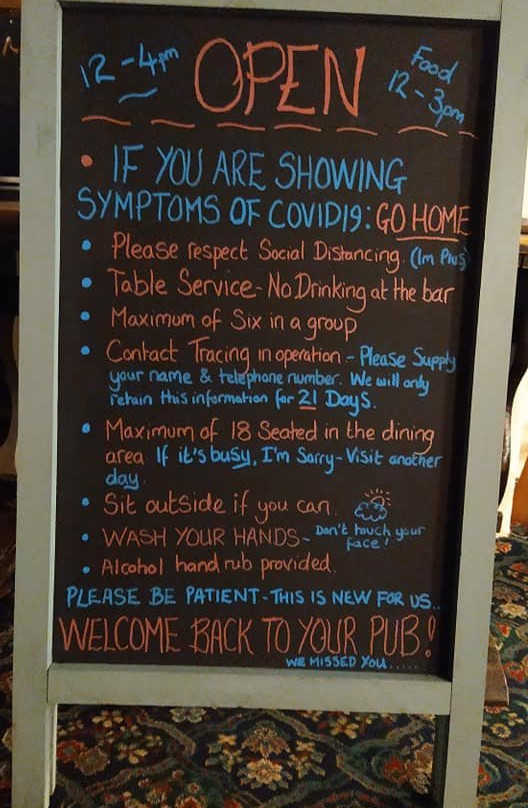 12-4pm OPEN Food 12-3pm
• IF YOU ARE SHOWING
SYMPTOMS OF COVID19: GO HOME
• Please respect Social Distancing. (1m Plus)
• Table Service - No Drinking at the bar
• Maximum of Six in a group
• Contact Tracing in operation - Please Supply
your name & telephone number. We will only
retain this information for 21 Days.
• Maximum of 18 Seated in the dining
area If it's busy, I'm Sorry - Visit another
day.
• Sit outside if you can.
• WASH YOUR HANDS - Don't touch your
face!
• Alcohol hand rub provided.
PLEASE BE PATIENT - THIS IS NEW FOR US..
WELCOME BACK TO YOUR PUB!
WE MISSED YOU.....